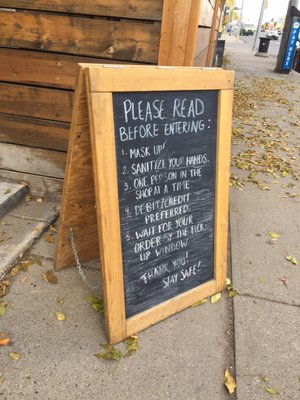 PLEASE READ
BEFORE ENTERING:
1. MASK UP!
2. SANITIZE YOUR HANDS.
3. ONE PERSON IN THE
SHOP AT A TIME
4. DEBIT/CREDIT
PREFERRED.
5. WAIT FOR YOUR
ORDER BY THE PICK-
UP WINDOW
THANK YOU!
STAY SAFE!